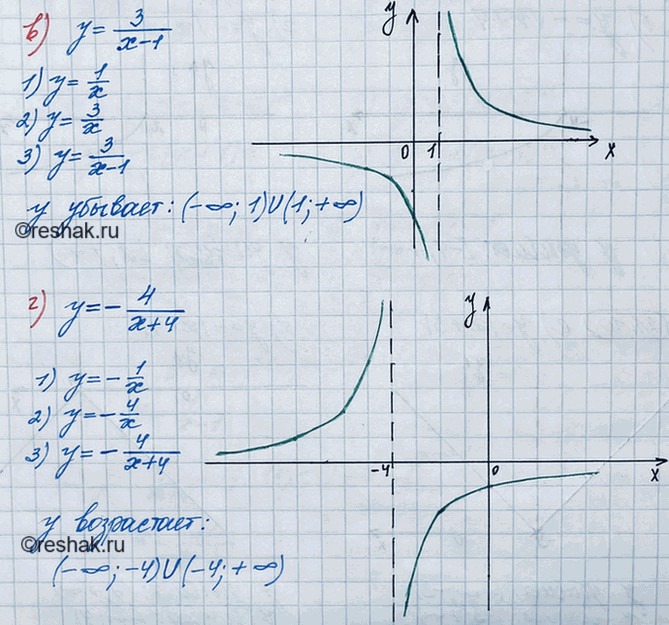 в) y = 3/(x-1)
1) y = 1/x
2) y = 3/x
3) y = 3/(x-1)
y убывает: (-∞; 1)∪(1; +∞)
©reshak.ru
y
0 1 x
г) y = - 4/(x+4)
1) y = - 1/x
2) y = - 4/x
3) y = - 4/(x+4)
y возрастает:
©reshak.ru
(-∞; -4)∪(-4; +∞)
y
-4 0 x